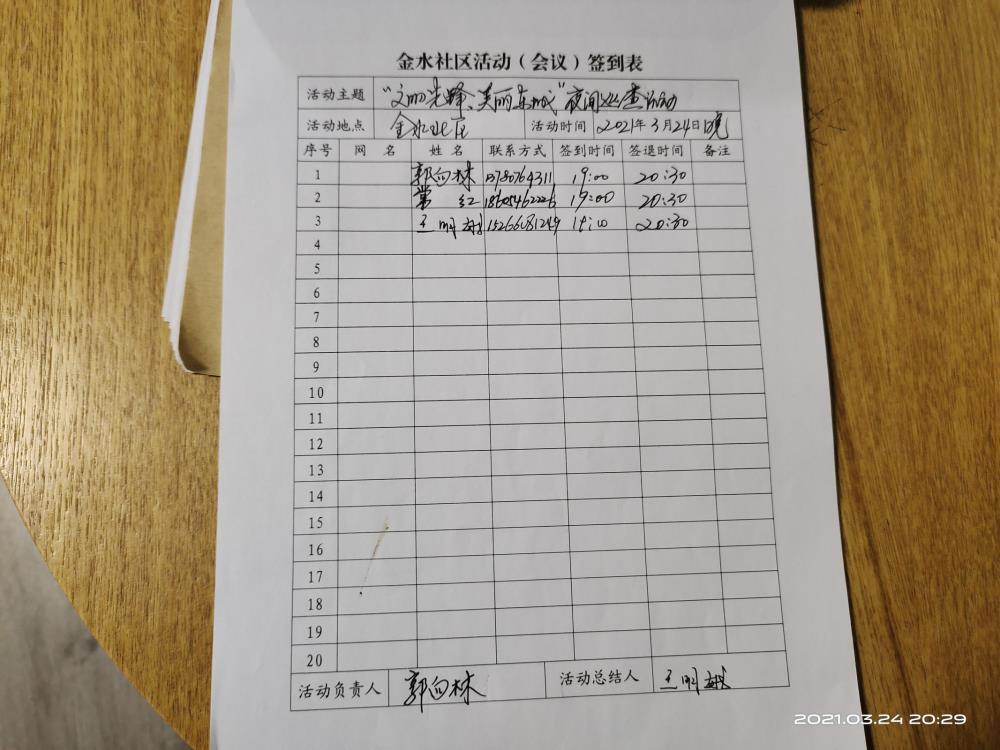 金水社区活动（会议）签到表
活动主题 “文明先锋、美丽东城”夜间巡查活动
活动地点 金水社区 活动时间 2021年3月24日晚
序号 网 名 姓 名 联系方式 签到时间 签退时间 备注
1 郭向林 19:00 20:30
2 常 红 19:00 20:30
3 王明 15266081249 20:30
4
5
6
7
8
9
10
11
12
13
14
15
16
17
18
19
20
活动负责人 郭向林 活动总结人 王明
2021.03.24 20:29